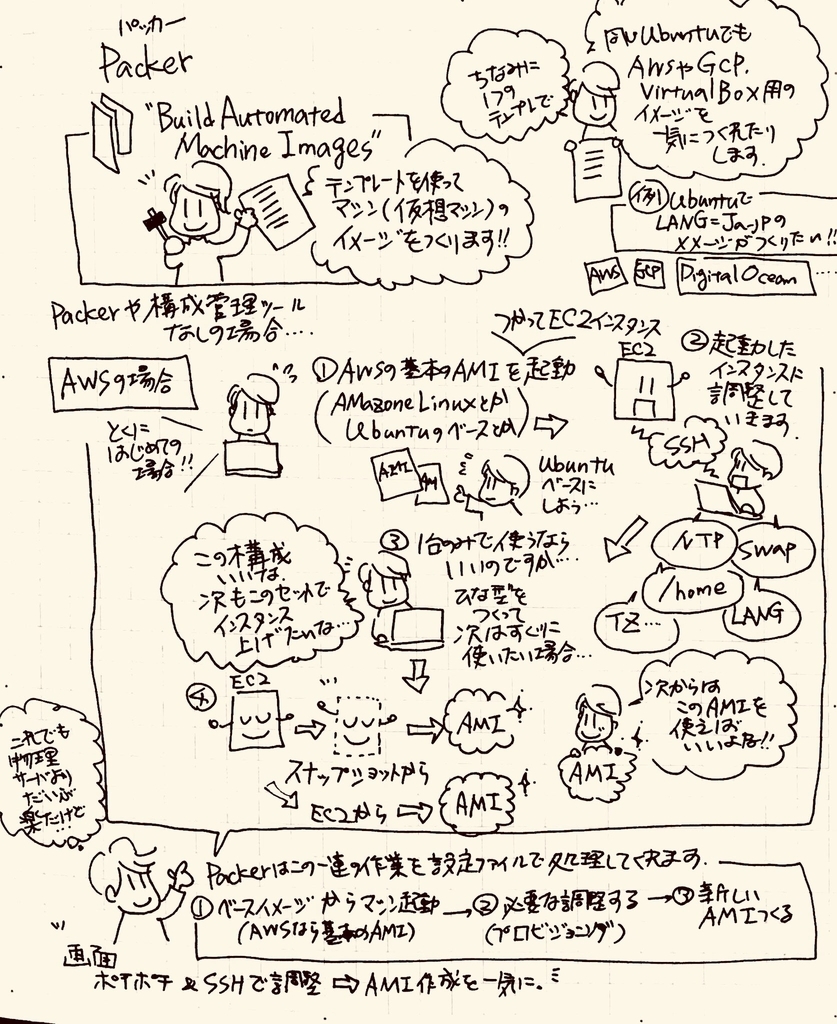 パッカー
Packer
"Build Automated
Machine Images"
テンプレートを使って
マシン(仮想マシン)の
イメージをつくります!!
ちなみに
1つの
テンプレで
同じUbuntuでも
AWSやGCP.
VirtualBox用の
イメージを
一気につくれたり
します.
例 Ubuntuで
LANG=Ja-JPの
イメージがつくりたい!!
AWS GCP DigitalOcean ...
Packerや構成管理ツール
なしの場合....
AWSの場合
とくに
はじめての
場合!!
①AWSの基本のAMIを起動
(AMazone Linuxとか
Ubuntuのベースとか)
つかってEC2インスタンス
EC2
②起動した
インスタンスに
調整して
いきます.
SSH
AMI
AMI
Ubuntu
ベースに
しよう...
NTP
SWAP
/home
TZ...
LANG
③ 1台のみで使うなら
いいのですが....
ひな型を
つくって
次はすぐに
使いたい場合...
この構成
いいな.
次もこのセットで
インスタンス
上げたいな...
④
EC2
AMI
スナップショットから
EC2から
AMI
次からは
このAMIを
使えば
いいよな!!
AMI
これでも
物理
サーバより
だいぶ
楽だけど
...
Packerはこの一連の作業を設定ファイルで処理してくれます.
①ベースイメージからマシン起動 → ②必要な調整する → ③新しい
AMIつくる
(AWSなら基本のAMI)
(プロビジョニング)
画面
ポチポチ & SSHで調整 ⇨ AMI作成を一気に.